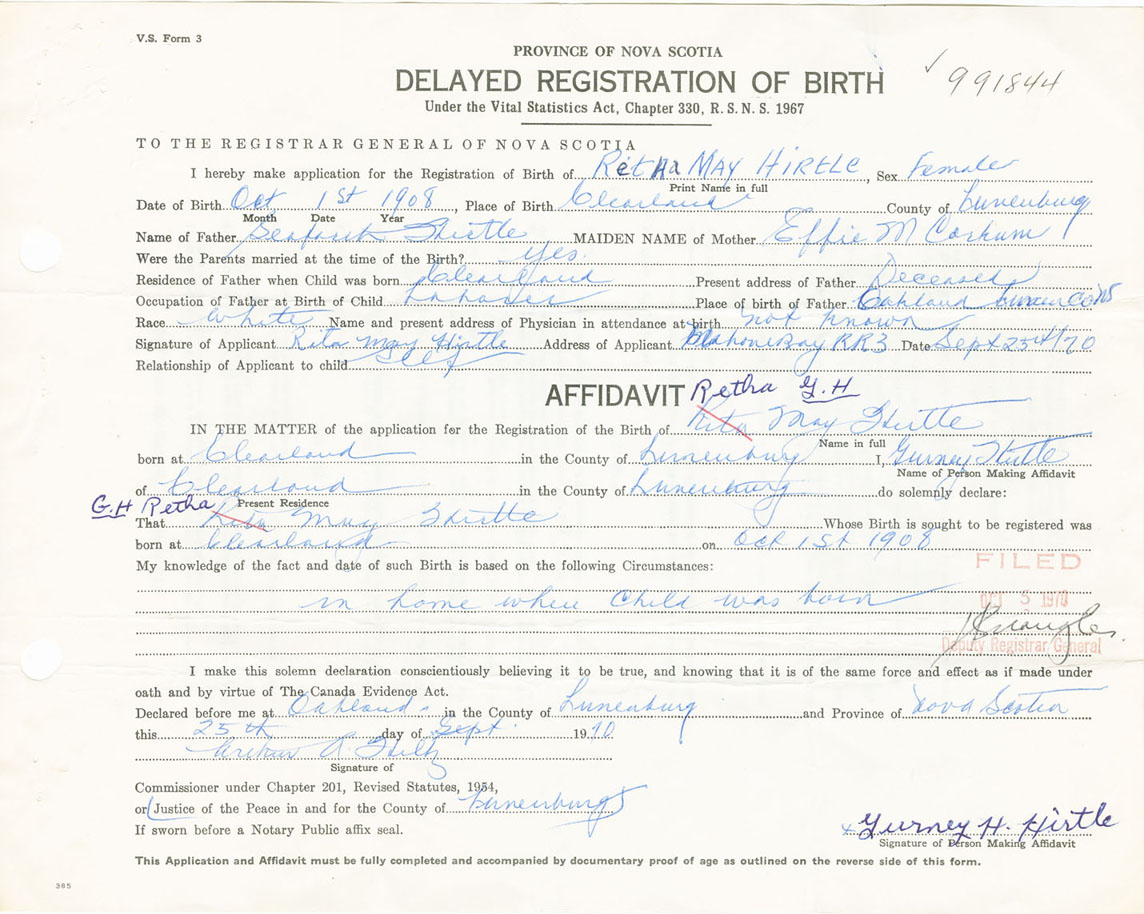 V.S. Form 3
PROVINCE OF NOVA SCOTIA
DELAYED REGISTRATION OF BIRTH
✓ 991844
Under the Vital Statistics Act, Chapter 330, R. S. N. S. 1967
TO THE REGISTRAR GENERAL OF NOVA SCOTIA
I hereby make application for the Registration of Birth of Retha MAY HIRTLE, Sex Female
Print Name in full
Date of Birth Oct 1st 1908, Place of Birth Clearland County of Lunenburg
Month Date Year
Name of Father Hirtle MAIDEN NAME of Mother Effie M Corkum
Were the Parents married at the time of the Birth? yes
Residence of Father when Child was born Clearland Present address of Father Deceased
Occupation of Father at Birth of Child Labourer Place of birth of Father Oakland Lunen Co NS
Race White Name and present address of Physician in attendance at birth not known
Signature of Applicant Rita May Hirtle Address of Applicant Mahone Bay RR3 Date Sept 25th/70
Relationship of Applicant to child Self
AFFIDAVIT Retha G.H
IN THE MATTER of the application for the Registration of the Birth of Rita May Hirtle
Name in full
born at Clearland in the County of Lunenburg I, Gurney Hirtle
Name of Person Making Affidavit
of Clearland in the County of Lunenburg do solemnly declare:
Present Residence
G.H Retha
That Rita May Hirtle Whose Birth is sought to be registered was
born at Clearland on Oct 1st 1908
My knowledge of the fact and date of such Birth is based on the following Circumstances:
FILED
in home where Child was born
OCT 5 1970
Deputy Registrar General
I make this solemn declaration conscientiously believing it to be true, and knowing that it is of the same force and effect as if made under
oath and by virtue of The Canada Evidence Act.
Declared before me at Oakland in the County of Lunenburg and Province of Nova Scotia
this 25th day of Sept. 1970
Arthur A.
Signature of
Commissioner under Chapter 201, Revised Statutes, 1954,
or (Justice of the Peace in and for the County of Lunenburg)
If sworn before a Notary Public affix seal.
x Gurney H. Hirtle
Signature of Person Making Affidavit
This Application and Affidavit must be fully completed and accompanied by documentary proof of age as outlined on the reverse side of this form.
385